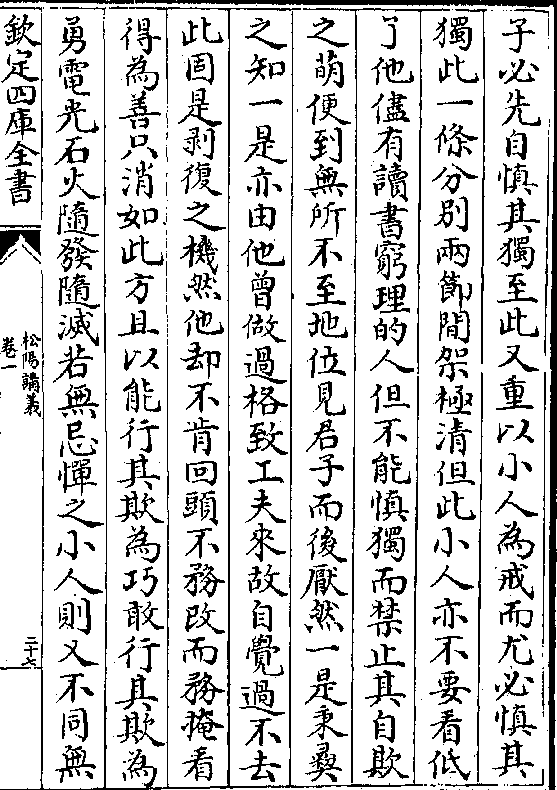 子必先自慎其獨至此又重以小人為戒而尤必慎其
獨此一條分别兩節間架極清但此小人亦不要看低
了他儘有讀書窮理的人但不能慎獨而禁止其自欺
之萌便到無所不至地位見君子而後厭然一是秉彞
之知一是亦由他曾做過格致工夫來故自覺過不去
此固是剥復之機然他却不肯回頭不務改而務掩看
得為善只消如此方且以能行其欺為巧敢行其欺為
勇電光石火隨發隨滅若無忌憚之小人則又不同無
欽定四庫全書
松陽講義
卷一
二十七